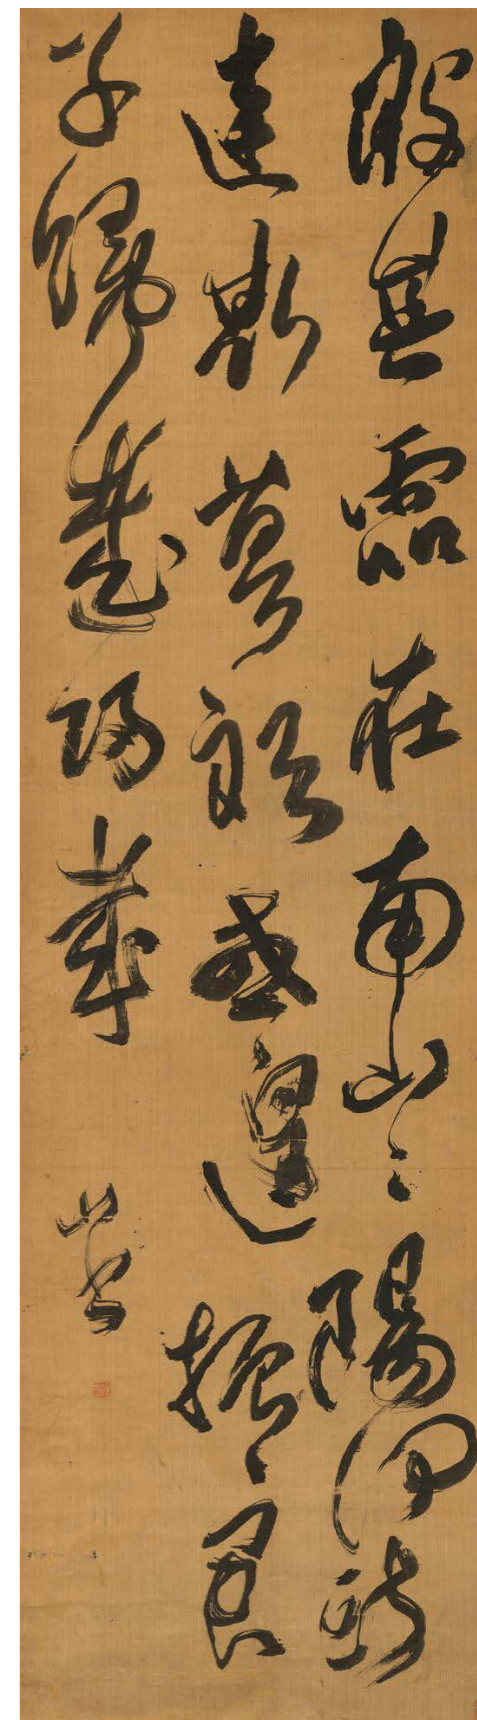 殷其靁在南山之陽何斯
違斯莫敢或遑振〻君
子歸哉歸哉
山書